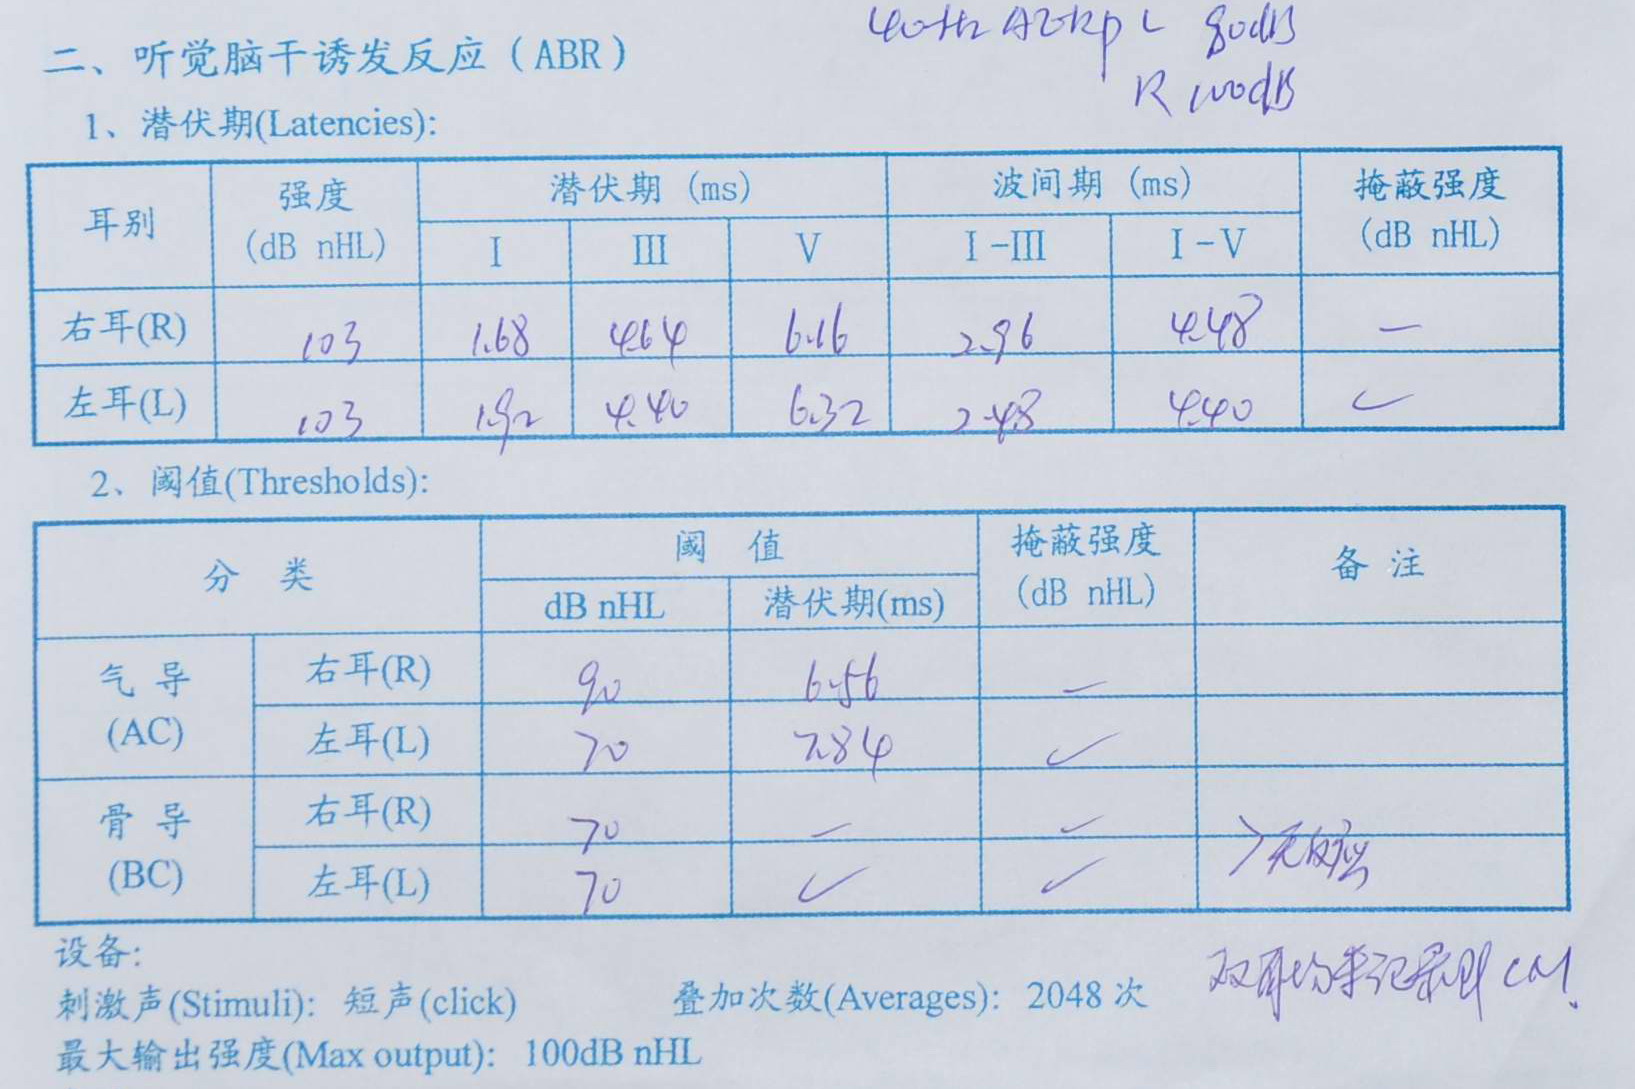 40Hz AERP L 80dB
R 100dB
二、听觉脑干诱发反应（ABR）
1、潜伏期(Latencies):
耳别 强度 (dB nHL) 潜伏期 (ms) 波间期 (ms) 掩蔽强度 (dB nHL)
I III V I-III I-V
右耳(R) 103 1.68 4.64 6.16 2.96 4.48 —
左耳(L) 103 1.92 4.40 6.32 2.48 4.40 ✓
2、阈值(Thresholds):
分 类 阈 值 掩蔽强度 (dB nHL) 备 注
dB nHL 潜伏期(ms)
气 导 (AC) 右耳(R) 90 6.56 —
左耳(L) 70 7.84 ✓
骨 导 (BC) 右耳(R) 70 — — >无反应
左耳(L) 70 ✓ ✓
设备:
刺激声(Stimuli): 短声(click) 叠加次数(Averages): 2048 次
双耳均未记录到 CM.
最大输出强度(Max output): 100dB nHL